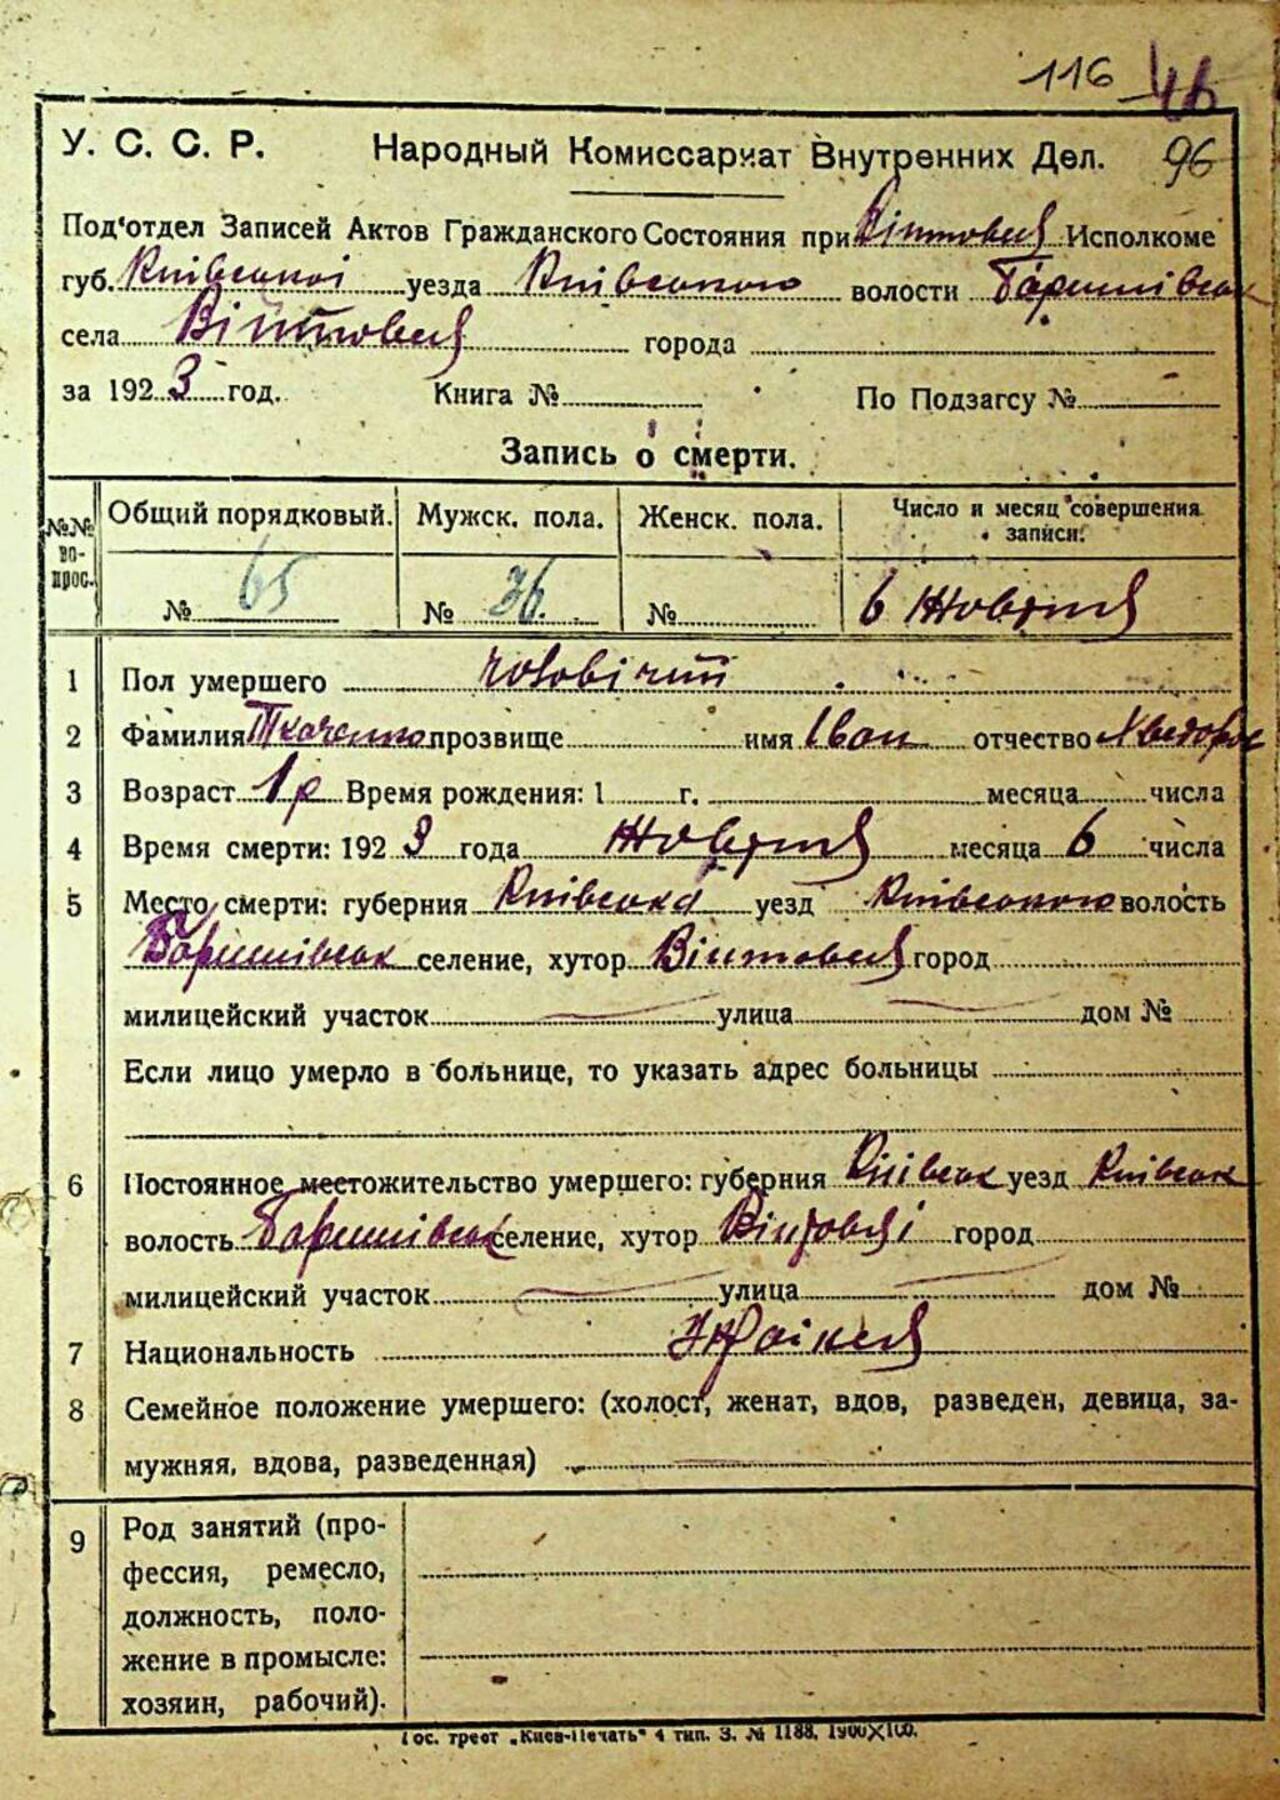 116 46
У. С. С. Р. Народный Комиссариат Внутренних Дел. 96
Под‘отдел Записей Актов Гражданского Состояния при Исполкоме
губ. Київської уезда Київського волости Баришівськ
села Війтовця города
за 1923 год. Книга № По Подзагсу №
Запись о смерти.
№№ во-прос. Общий порядковый. Мужск. пола. Женск. пола. Число и месяц совершения записи:
№ 65 № 36. № 6 Жовтня
1 Пол умершего чоловічий
2 Фамилия Ткаченко прозвище имя Іван отчество
3 Возраст 1 р Время рождения: 1 г. месяца числа
4 Время смерти: 1923 года Жовтня месяца 6 числа
5 Место смерти: губерния Київська уезд Київського волость
Баришівськ селение, хутор город
милицейский участок улица дом №
Если лицо умерло в больнице, то указать адрес больницы
6 Постоянное местожительство умершего: губерния Київськ уезд Київськ
волость Баришівськ селение, хутор город
милицейский участок улица дом №
7 Национальность
8 Семейное положение умершего: (холост, женат, вдов, разведен, девица, за-
мужняя, вдова, разведенная)
9 Род занятий (про-
фессия, ремесло,
должность, поло-
жение в промысле:
хозяин, рабочий).
Гос. трест „Киев-Печать“ 4 тип. З. № 1188, 1900×100.